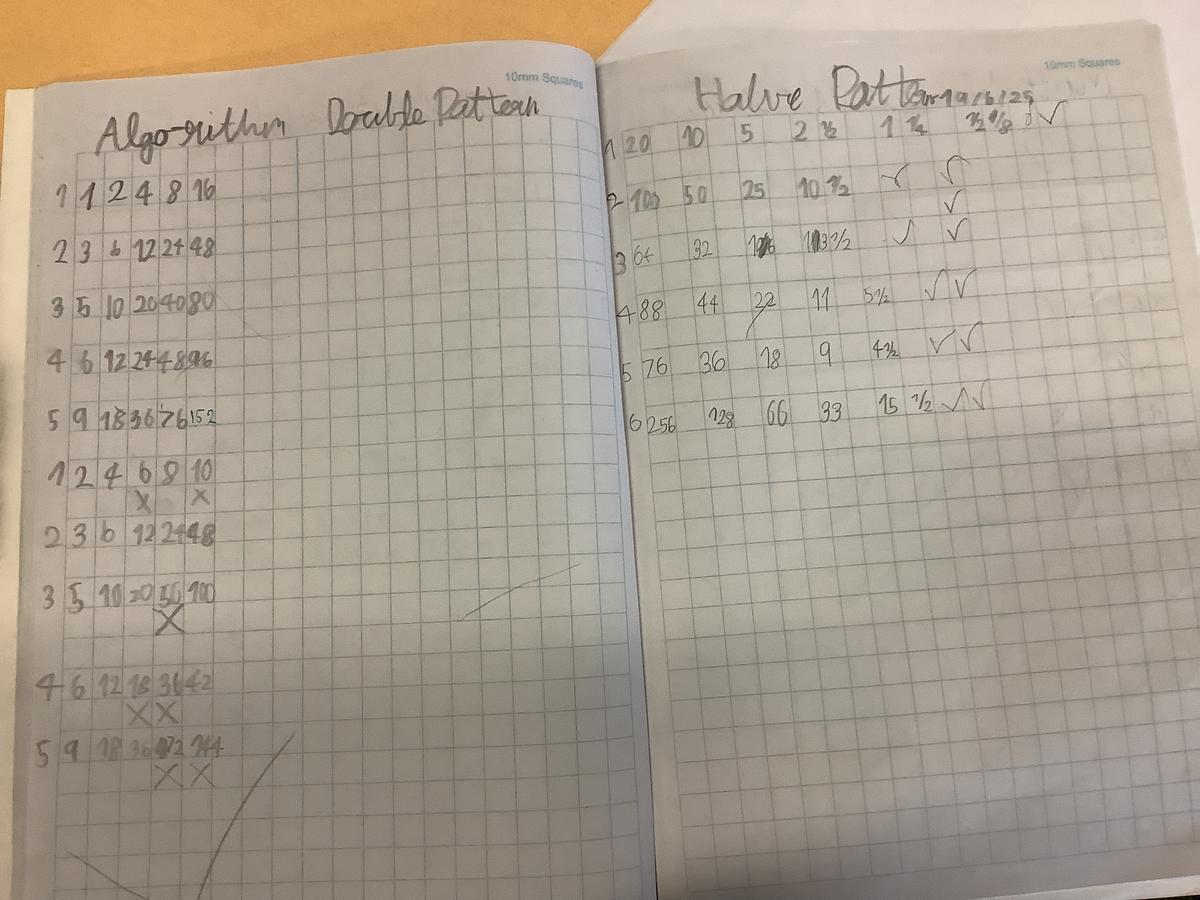 10mm Squares
Algo-rithm Double Pattern
1 1 2 4 8 16
2 3 6 12 24 48
3 5 10 20 40 80
4 6 12 24 48 96
5 9 18 36 76 152
1 2 4 6 8 10
2 3 6 12 24 48
3 5 10 20 50 100
4 6 12 18 36 42
5 9 18 36 72 144
10mm Squares
Halve
1 20 10 5 2 ½ 1 ¼
2 100 50 25 10 ½
3 64 32
4 88 44 22 11 5½
5 76 36 18 9 4½
6 256 128 66 33 15 ½